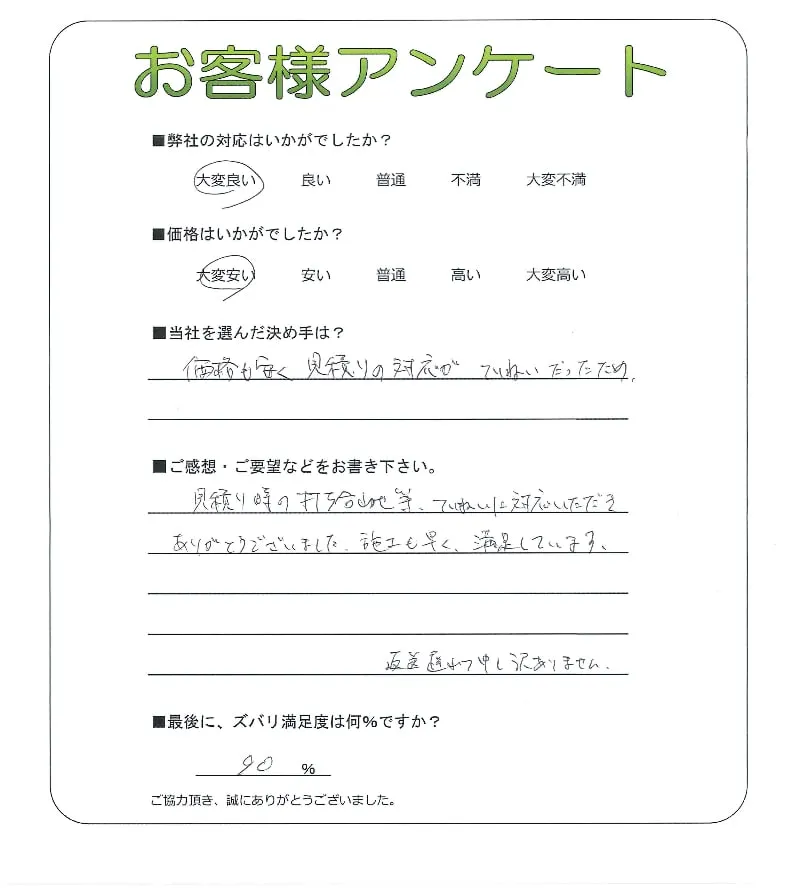 お客様アンケート
■弊社の対応はいかがでしたか？
大変良い 良い 普通 不満 大変不満
■価格はいかがでしたか？
大変安い 安い 普通 高い 大変高い
■当社を選んだ決め手は？
価格も安く 見積りの対応が ていねいだったため、
■ご感想・ご要望などをお書き下さい。
見積り時の打ち合わせ等、ていねいに対応いただき
ありがとうございました。施工も早く、満足しています。
返送遅れて申し訳ありません。
■最後に、ズバリ満足度は何%ですか？
90 %
ご協力頂き、誠にありがとうございました。